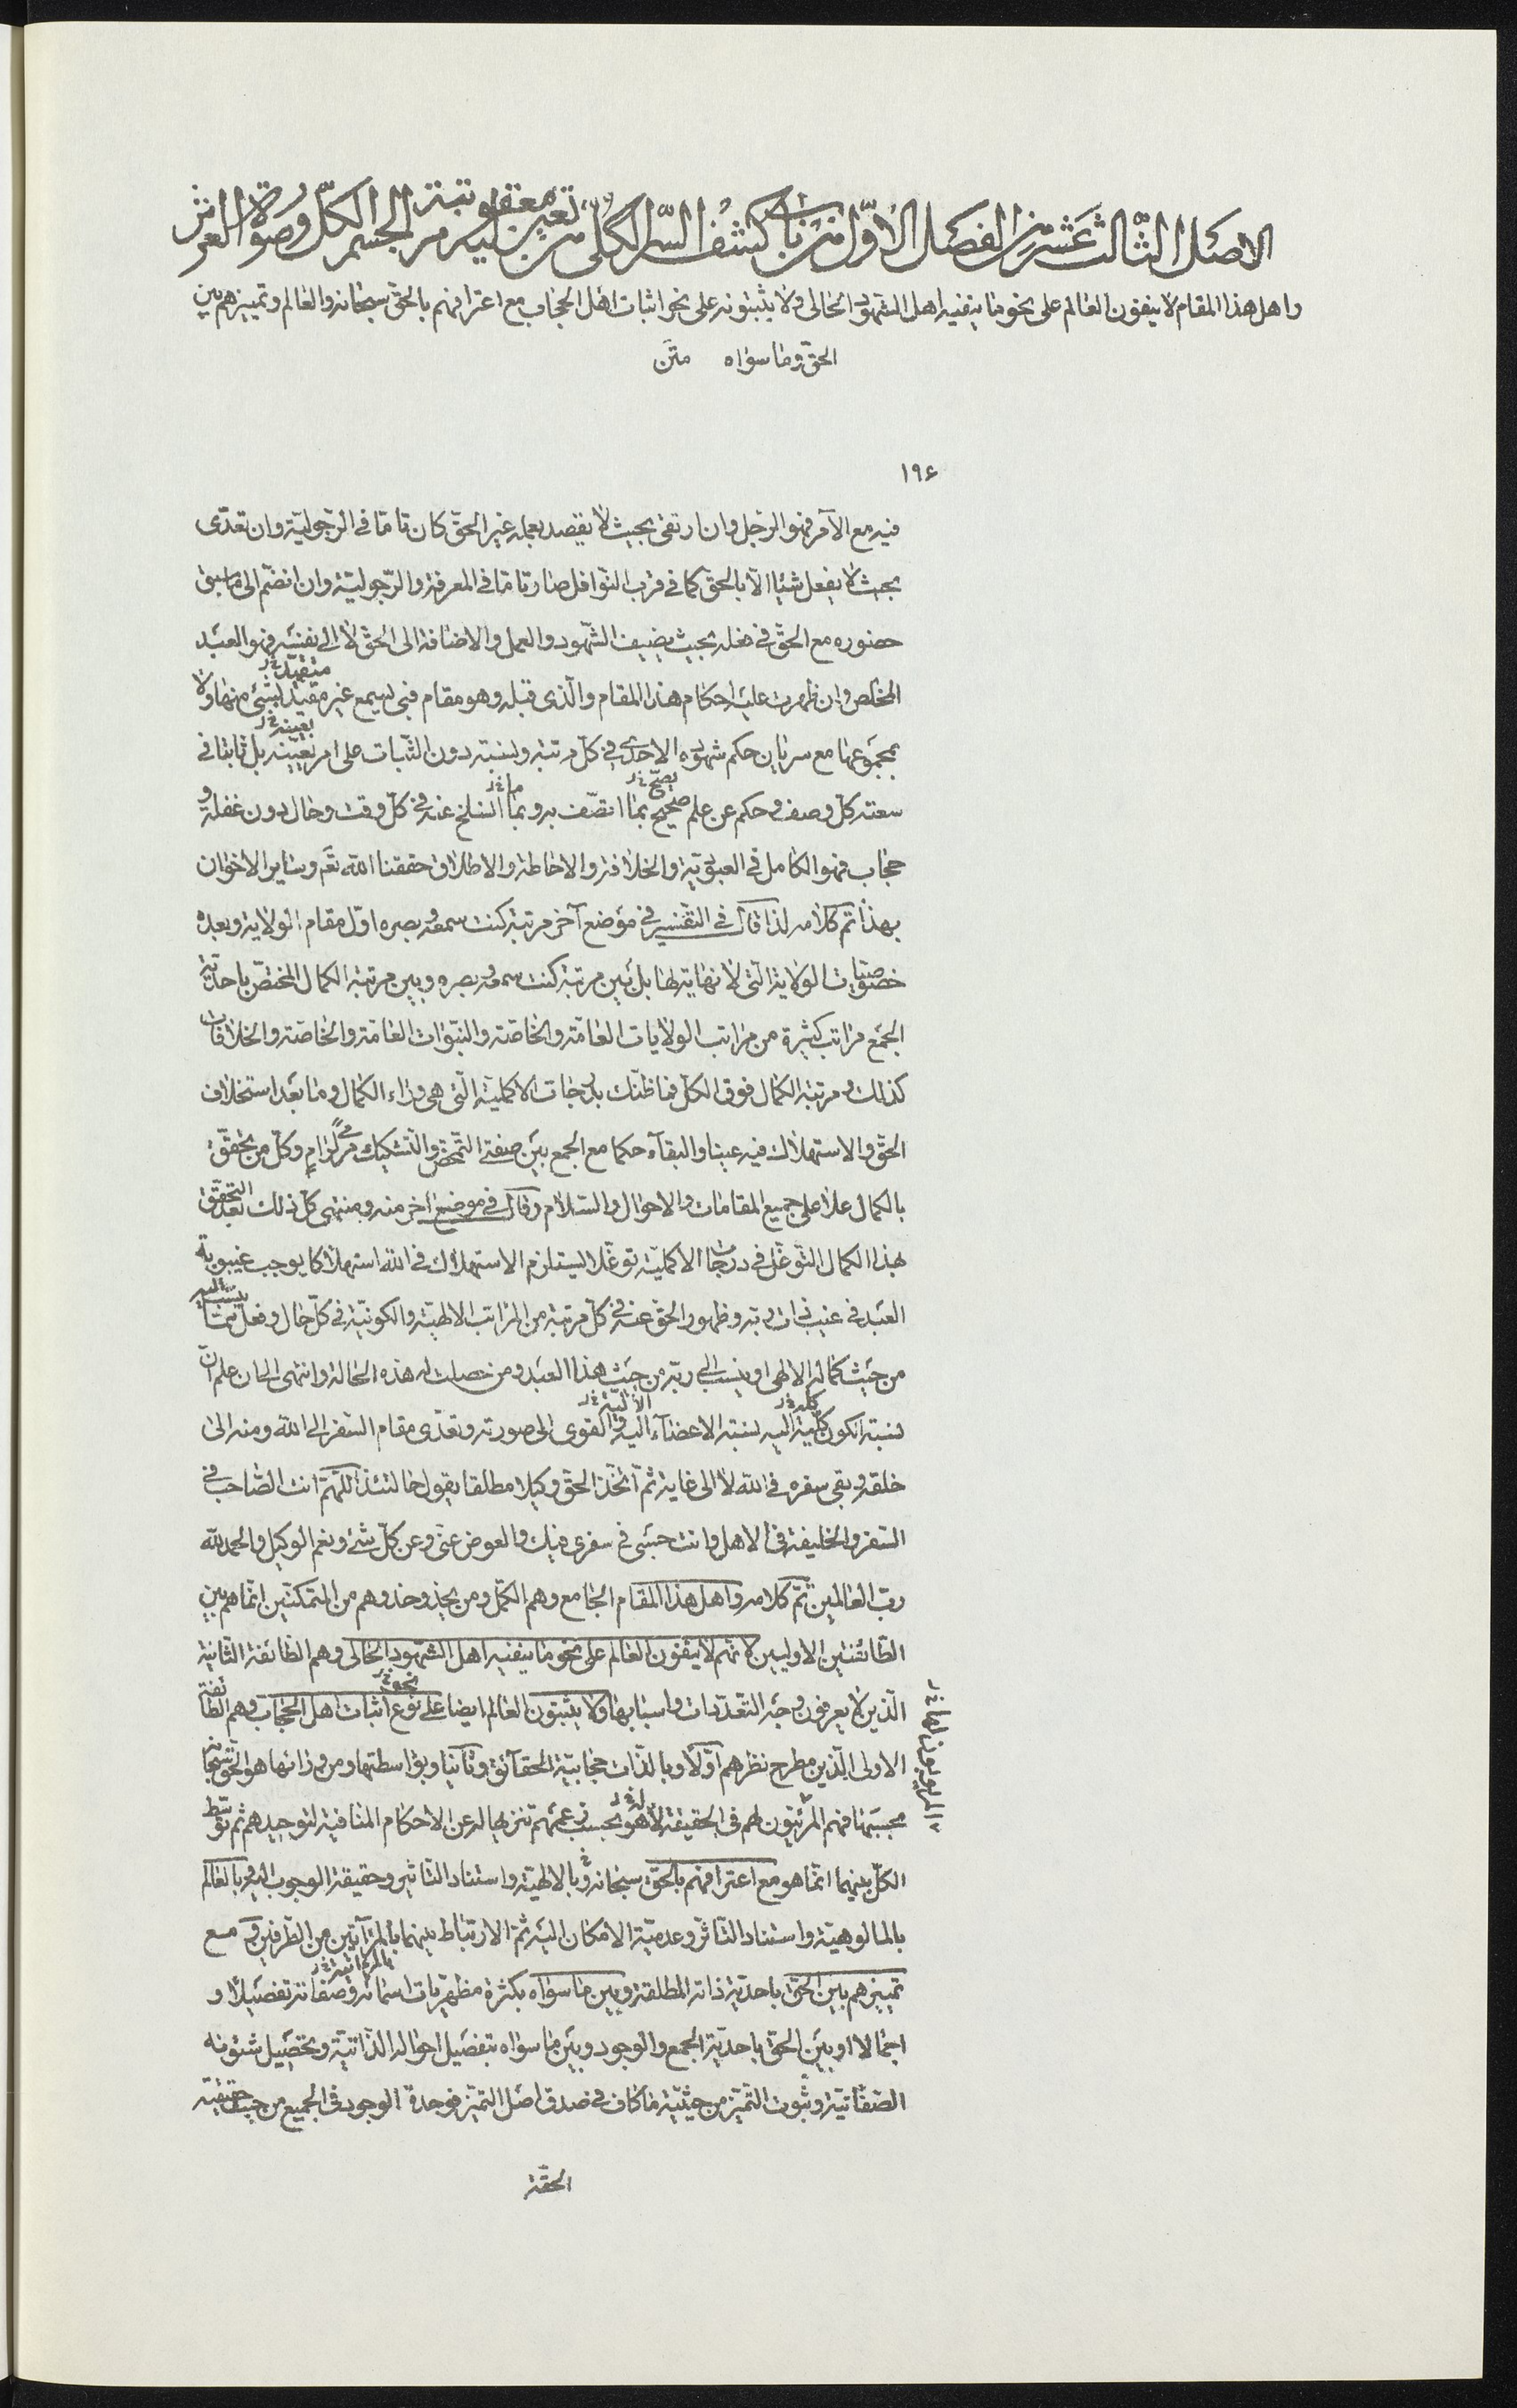 الاصل الثالث عشر من الفصل الاوّل من باب كشف السّر الكلّى من تعيين مرتبة الجسم الكلّ وصورة العرش
واهل هذا المقام لا ينفون العالم على نحو ما ينفيه اهل الشهود الحالى ولا يثبتونه على نحو اثبات اهل الحجاب مع اعترافهم بالحقّ سبحانه والعالم وتمييزهم بين
الحقّ وما سواه متن
١٩۶
فيه مع الآمر فهو الرّجل وان ارتقى بحيث لا يقصد بعمله غير الحقّ كان تامّا فى الرّجوليّة وان تعدّى
بحيث لا يفعل شيئا الّا بالحقّ كما فى قرب النّوافل صار تامّا فى المعرفة والرّجوليّة وان انضمّ الى ما سبق
حضوره مع الحقّ فى فعله بحيث يضيف الشّهود والعمل والاضافة الى الحقّ لا الى نفسه فهو العبد
متقيّد خ ر
المخلص وان ظهرت عليه احكام هذا المقام والّذى قبله وهو مقام فبى يسمع غير مقيّد بشئ منها ولا
بعينه خ ر
بمجموعها مع سريان حكم شهوده الاحدى فى كلّ مرتبة ونسبة دون الثّبات على امر بعينه بل ثابتا فى
يصحّ خ ر ما خ ر
سعته كلّ وصف وحكم عن علم صحيح بما اتّصف به وبما انسلخ عنه فى كلّ وقت وحال دون غفلة و
حجاب فهو الكامل فى العبوديّة والخلافة والاحاطة والاطلاق حقّقنا الله تعم وساير الاخوان
بهذا تمّ كلامه لذا قال فى التفسير فى موضع آخر مرتبة كنت سمعه وبصره اوّل مقام الولاية وبعده
خصوصيّات الولاية الّتى لا نهاية لها بل بين مرتبة كنت سمعه وبصره وبين مرتبة الكمال المختصّ باحديّة
الجمع مراتب كثيرة من مراتب الولايات العامّة والخاصّة والنبوّات العامّة والخاصّة والخلافات
كذلك ومرتبة الكمال فوق الكلّ فما ظنّك بدرجات الاكمليّة الّتى هى وراء الكمال وما بعد استخلاف
الحقّ والاستهلاك فيه عينا والبقآء حكما مع الجمع بين صفتى التّمحّض والتّشكيك مرمى لرامٍ وكلّ من تحقّق
بالكمال علا على جميع المقامات والاحوال والسّلام وقال فى موضع آخر منه ومنتهى كلّ ذلك بعد التحقّق
بهذا الكمال التّوغّل فى درجات الاكمليّة توغّلا يستلزم الاستهلاك فى الله استهلاكا يوجب غيبوبة
العبد فى غيب ذات ربّه وظهور الحقّ عنه فى كلّ مرتبة من المراتب الالهيّة والكونيّة فى كلّ حال وفعل ممّا ينسب اليه
من حيث كماله الالهى او ينسب الى ربّه من حيث هذا العبد ومن حصلت له هذه الحالة وانتهى الى ان علم انّ
كلّه خ ر الآليّة خ ر
نسبة الكون كلّية اليه نسبة الاعضآء اليه والقوى الى صورته وتعدّى مقام السّفر الى الله ومنه الى
خلقه وبقى سفره فى الله لا الى غاية ثمّ اتّخذ الحقّ وكيلا مطلقا يقول حالتئذ اللّهمّ انت الصّاحب فى
السّفر والخليفة فى الاهل وانت حسبى فى سفرى فيك والعوض عنّى وعن كلّ شئ ونعم الوكيل والحمد لله
ربّ العالمين تمّ كلامه واهل هذا المقام الجامع وهم الكمّل ومن يحذو حذوهم من المتمكّنين انّما هم بين
الطّائفتين الاوليين لانّهم لا ينفون العالم على نحو ما ينفيه اهل الشّهود الحالى وهم الطّائفة الثّانية
نحو خ ر
الّذين لا يعرفون وجه التّعدّدات واسبابها ولا يثبتون العالم ايضا على نوع اثبات اهل الحجاب وهم الطّائفة
الاولى الّذين مطرح نظرهم اوّلا وبالذّات حجابيّة الحقآئق وثانيا وبواسطتها ومن ورائها هو الحقّ سبحانه
بحسبها فهم المرئيّون لهم فى الحقيقة لا هو بحسب زعمهم تنزيها له عن الاحكام المنافية لتوحيدهم ثمّ توسّط
الكلّ بينهما انّما هو مع اعترافهم بالحقّ سبحانه وبالالهيّة واستناد التّاثير وحقيقة الوجوب اليه وبالعالم
بالمالوهيّة واستناد التّاثّر وعدميّة الامكان اليه ثمّ الارتباط بينهما بالمرآتيّة من الطّرفين ومع
بالمرآتيّة خ ر
تمييزهم بين الحقّ باحديّة ذاته المطلقة وبين ما سواه بكثرة مظهريّات اسمائه وصفاته تفصيلا و
اجمالا او بين الحقّ باحديّة الجمع والوجود وبين ما سواه بتفصيل احواله الذّاتيّة وتحصيل شئونه
الصّفاتيّة وثبوت التّميّز من حيثيّة ما كاف فى صدق اصل التميّز فوحدة الوجود فى الجميع من حيث حقيقته
الحقّة